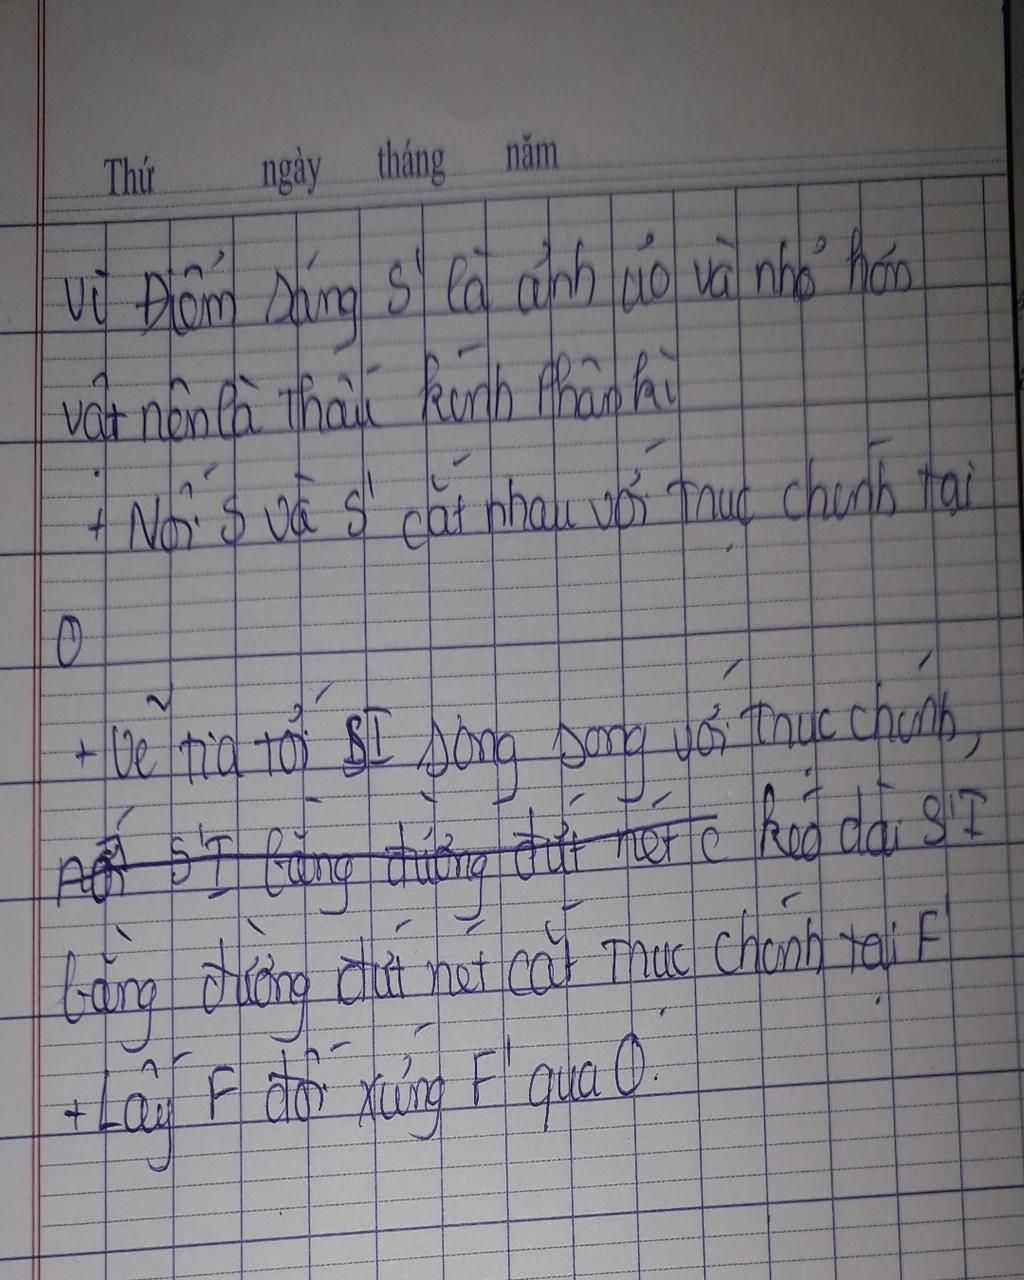 Thứ ngày tháng năm
Vì Điểm sáng S' là ảnh ảo và nhỏ hơn
vật nên là thấu kính phân kì
+ Nối S và S' cắt nhau với trục chính tại
O
+ Vẽ tia tới SI song song với trục chính,
nối S'I bằng đường đứt nét c kéo dài S'I
bằng đường đứt nét cắt trục chính tại F'
+ Lấy F đối xứng F' qua O.